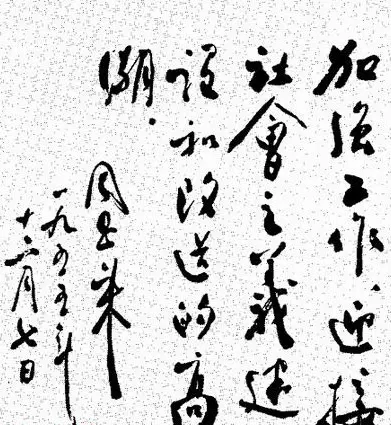 加強工作、迎接
社會主義建
設和改造的高
潮.
周恩來
一九五五年
十二月七日